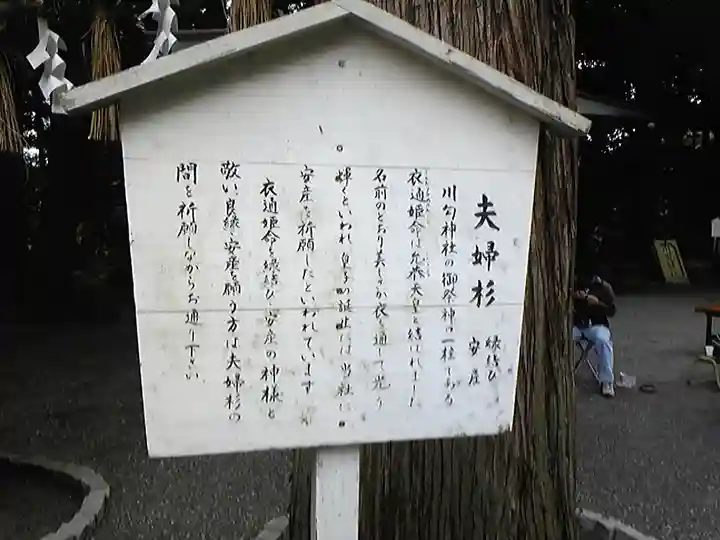 夫婦杉
縁結び
安産
川勾神社の御祭神の一柱である
衣通姫命は允恭天皇と結ばれました
名前のとおり美しさが衣を通して光り
輝くといわれ皇子の誕生には当社に
安産を祈願したといわれています
衣通姫命を縁結び、安産の神様と
敬い、良縁・安産を願う方は夫婦杉の
間を祈願しながらお通り下さい